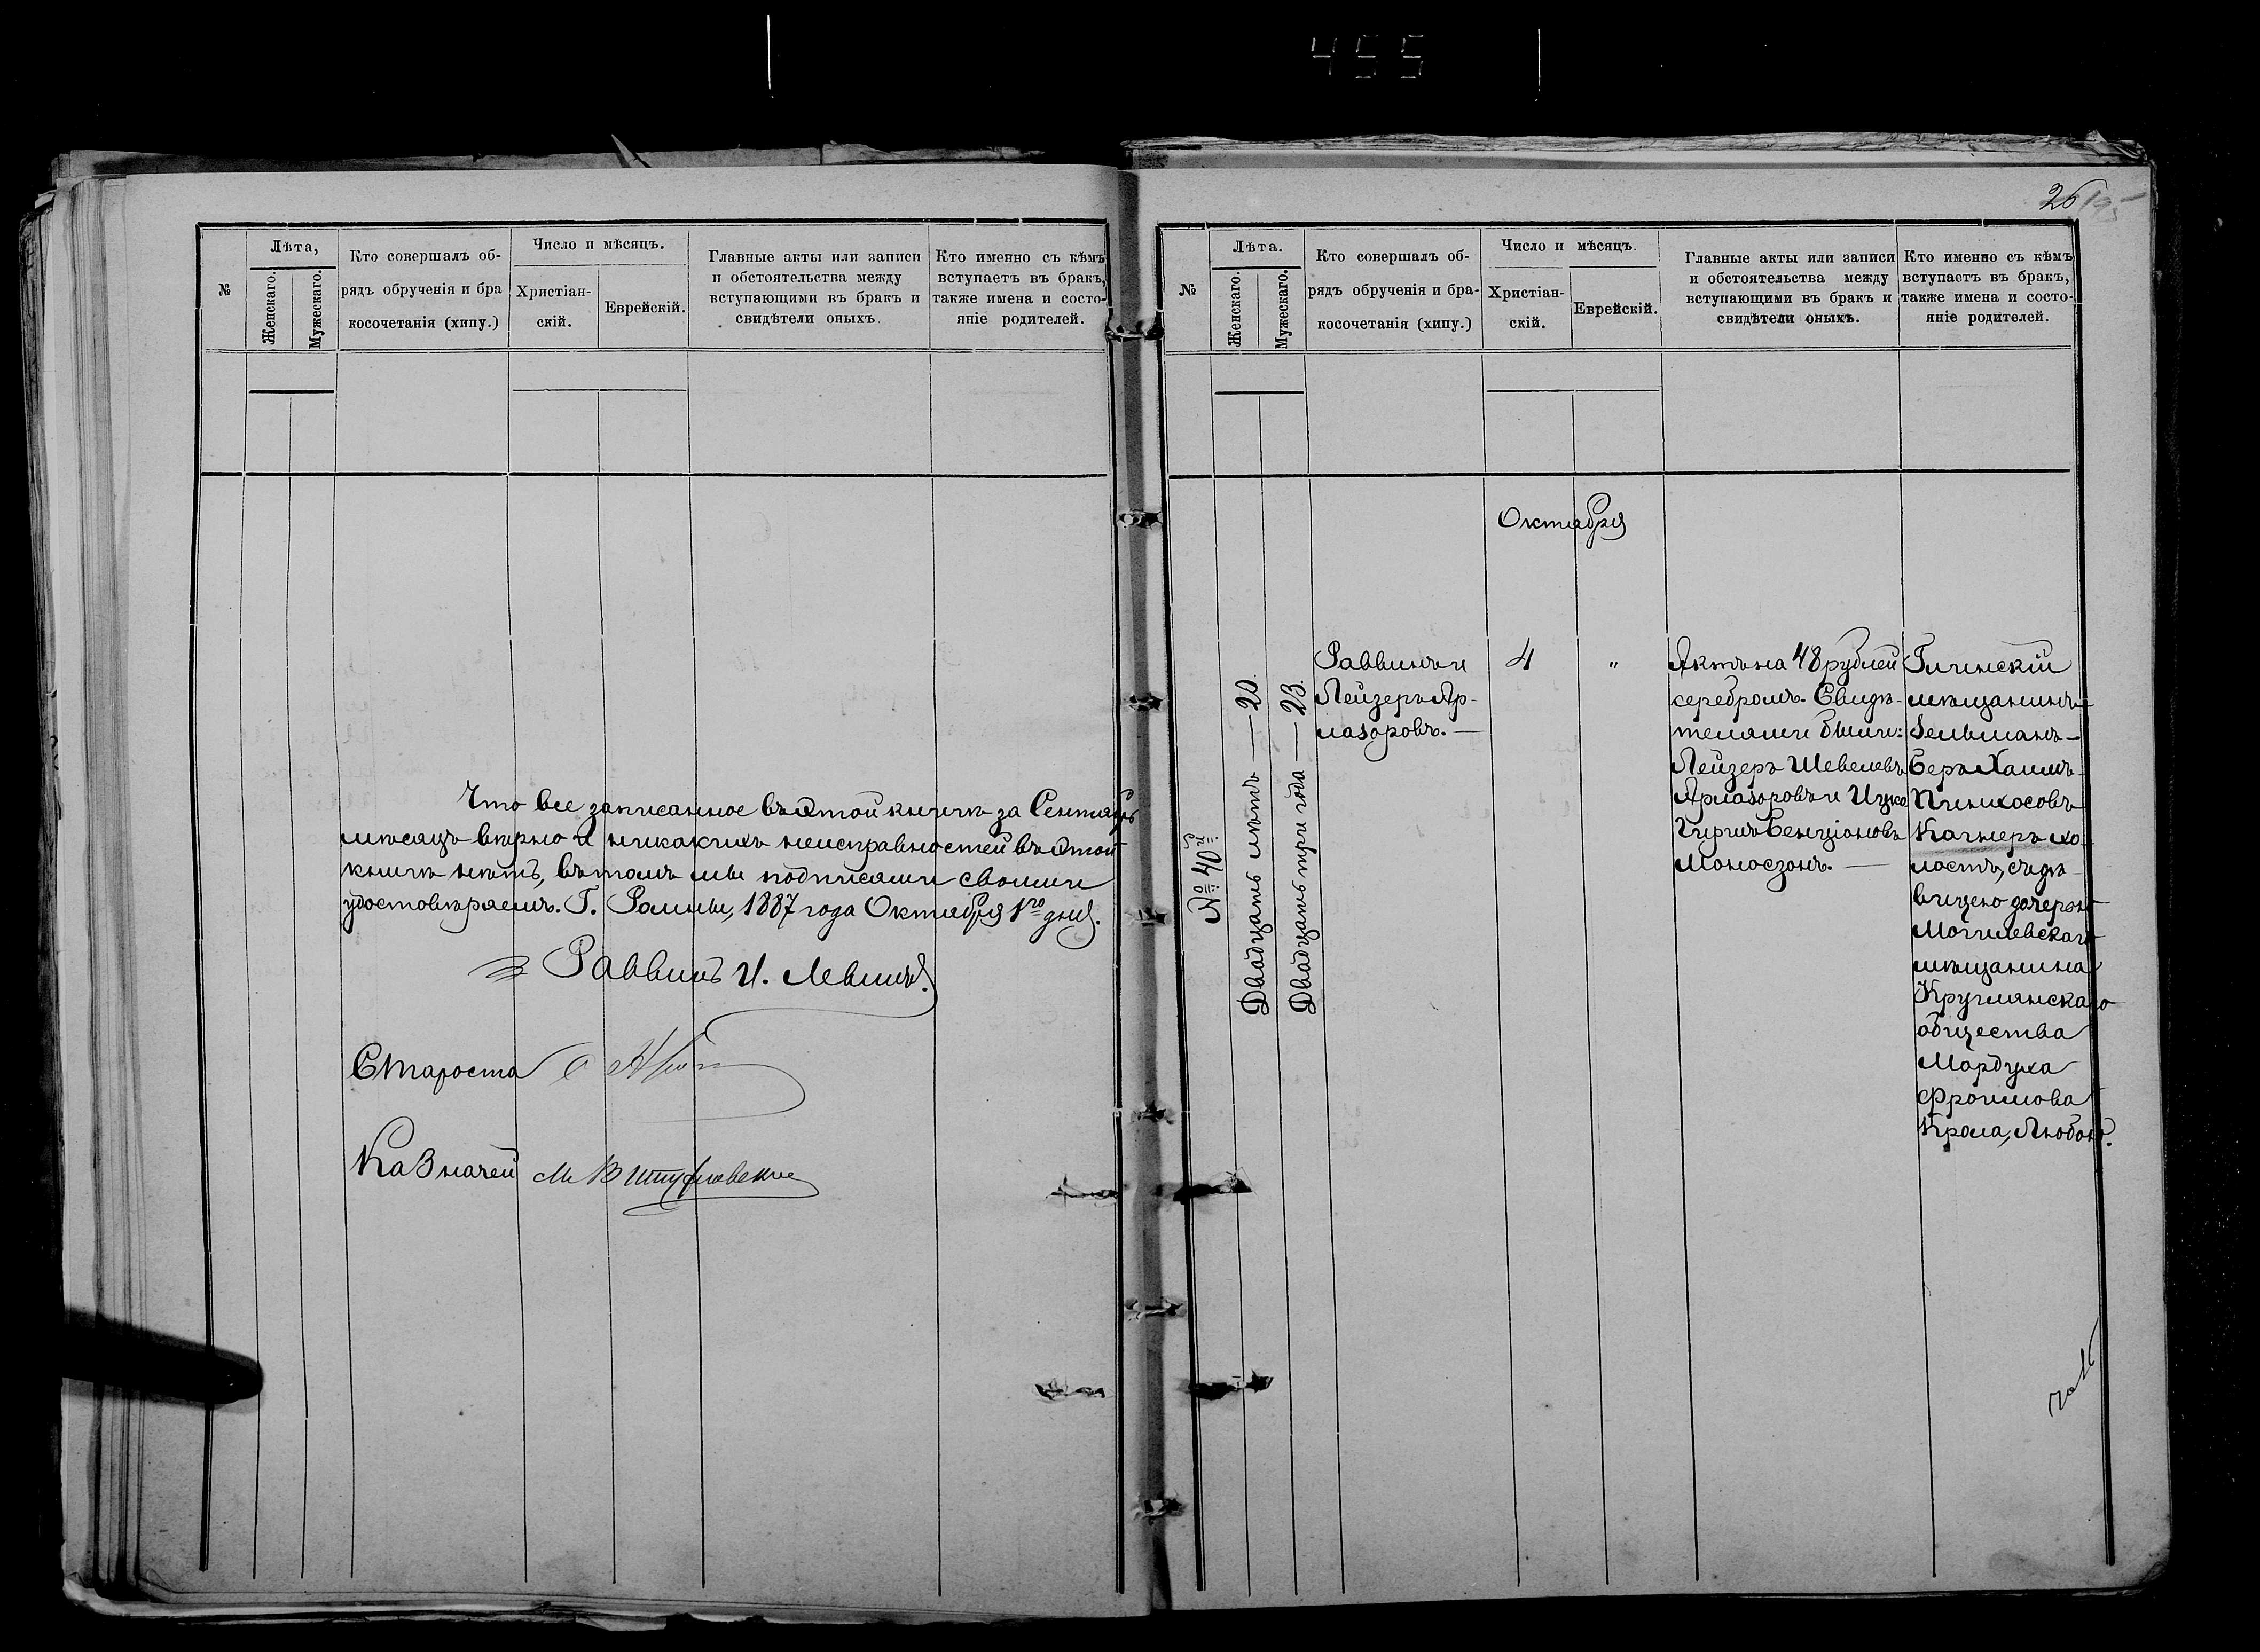 455
№
Лѣта,
Женскаго.
Мужескаго.
Кто совершалъ об-
рядъ обрученія и бра
косочетанія (хипу.)
Число и мѣсяцъ.
Христіан-
скій.
Еврейскій.
Главные акты или записи
и обстоятельства между
вступающими въ бракъ и
свидѣтели оныхъ.
Кто именно съ кѣмъ
вступаетъ въ бракъ,
также имена и состо-
яніе родителей.
Что все записанное въ этой книгѣ за Сентябрь
мѣсяцъ вѣрно и никакихъ неисправностей въ этой
книгѣ нѣтъ, въ томъ мы подписями своими
удостовѣряемъ. Г. Ромны, 1887 года Октября 1го дня.
Раввинъ И. Левинъ.
Староста
Казначей М В
26
195
№
Лѣта.
Женскаго.
Мужескаго.
Кто совершалъ об-
рядъ обрученія и бра-
косочетанія (хипу.)
Число и мѣсяцъ.
Христіан-
скій.
Еврейскій.
Главные акты или записи
и обстоятельства между
вступающими въ бракъ и
свидѣтели оныхъ.
Кто именно съ кѣмъ
вступаетъ въ бракъ,
также имена и состо-
яніе родителей.
Октября
№ 40й
Двадцать лѣтъ — 20.
Двадцать три года — 23.
Раввинъ и
Лейзеръ Ар-
лазоровъ. —
4
"
Актъ на 48 рублей
серебромъ. Свидѣ-
телями были:
Лейзеръ Шевелевъ
Арлазоровъ и Ицко
Гиршъ Бенціоновъ
Моносзонъ. —
мѣщанинъ
Зельманъ-
Беръ Хаимъ-
Пинхосовъ
Кагнеръ хо-
лостъ, съ дѣ-
вицею дочерью
Могилевскаго
мѣщанина
Круглянскаго
общества
Мордуха
Фроимова
Крола, Любою.